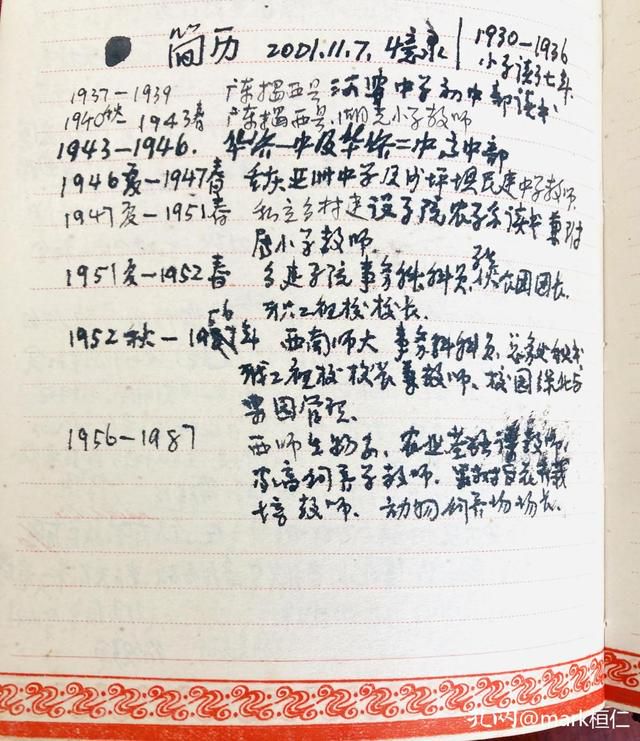 简历 2001.11.7. 忆录
1930—1936
小学读了七年
1937—1939 广东揭西县河婆中学初中部读书
1940秋—1943春 广东揭西县、湖光小学教师
1943—1946. 华侨一中及华侨二中高中部
1946夏—1947春 重庆亚洲中学及沙坪坝民建中学教师.
1947夏—1951春 私立乡村建设学院农学系读书兼附
属小学教师.
1951夏—1952春 乡建学院事务科科员、农园园长.
职工业校校长.
1952秋—1956年 西南师大事务科科员、总务处秘书
职工业校校长兼教师、校园绿化与
果园管理.
1956—1987 西师生物系、农业基础课教师,
家畜饲养学教师. 果树百花栽
培教师. 动物饲养场场长.
孔网@mark桓仁